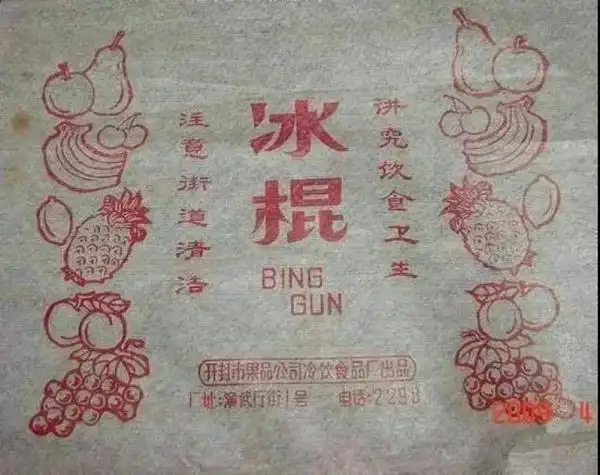 讲究饮食卫生
冰棍
注意街道清洁
BING
GUN
开封市果品公司冷饮食品厂出品
厂址:演武厅街1号 电话:2293